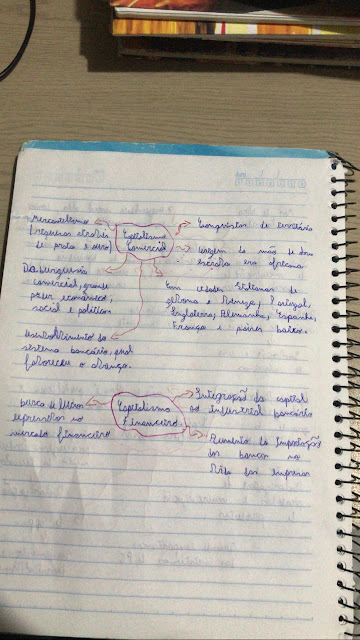 Mercantilismo
(riquezas através
de prata e ouro)
Capitalismo
Comercial
Conquistas de território
origem da mão de obra
escrava era africana
Da burguesia
comercial, grande
poder econômico,
social e político
Em cidades Italianas de
gênova e Veneza, Portugal,
Inglaterra, Alemanha, Espanha,
França e países baixos.
desenvolvimento do
sistema bancário, qual
favoreceu o avanço.
busca de lucros
no
mercado financeiro
Capitalismo
Financeiro
Integração do capital
ao industrial bancário
Aumento da Importação
dos bancos na
vida das empresas